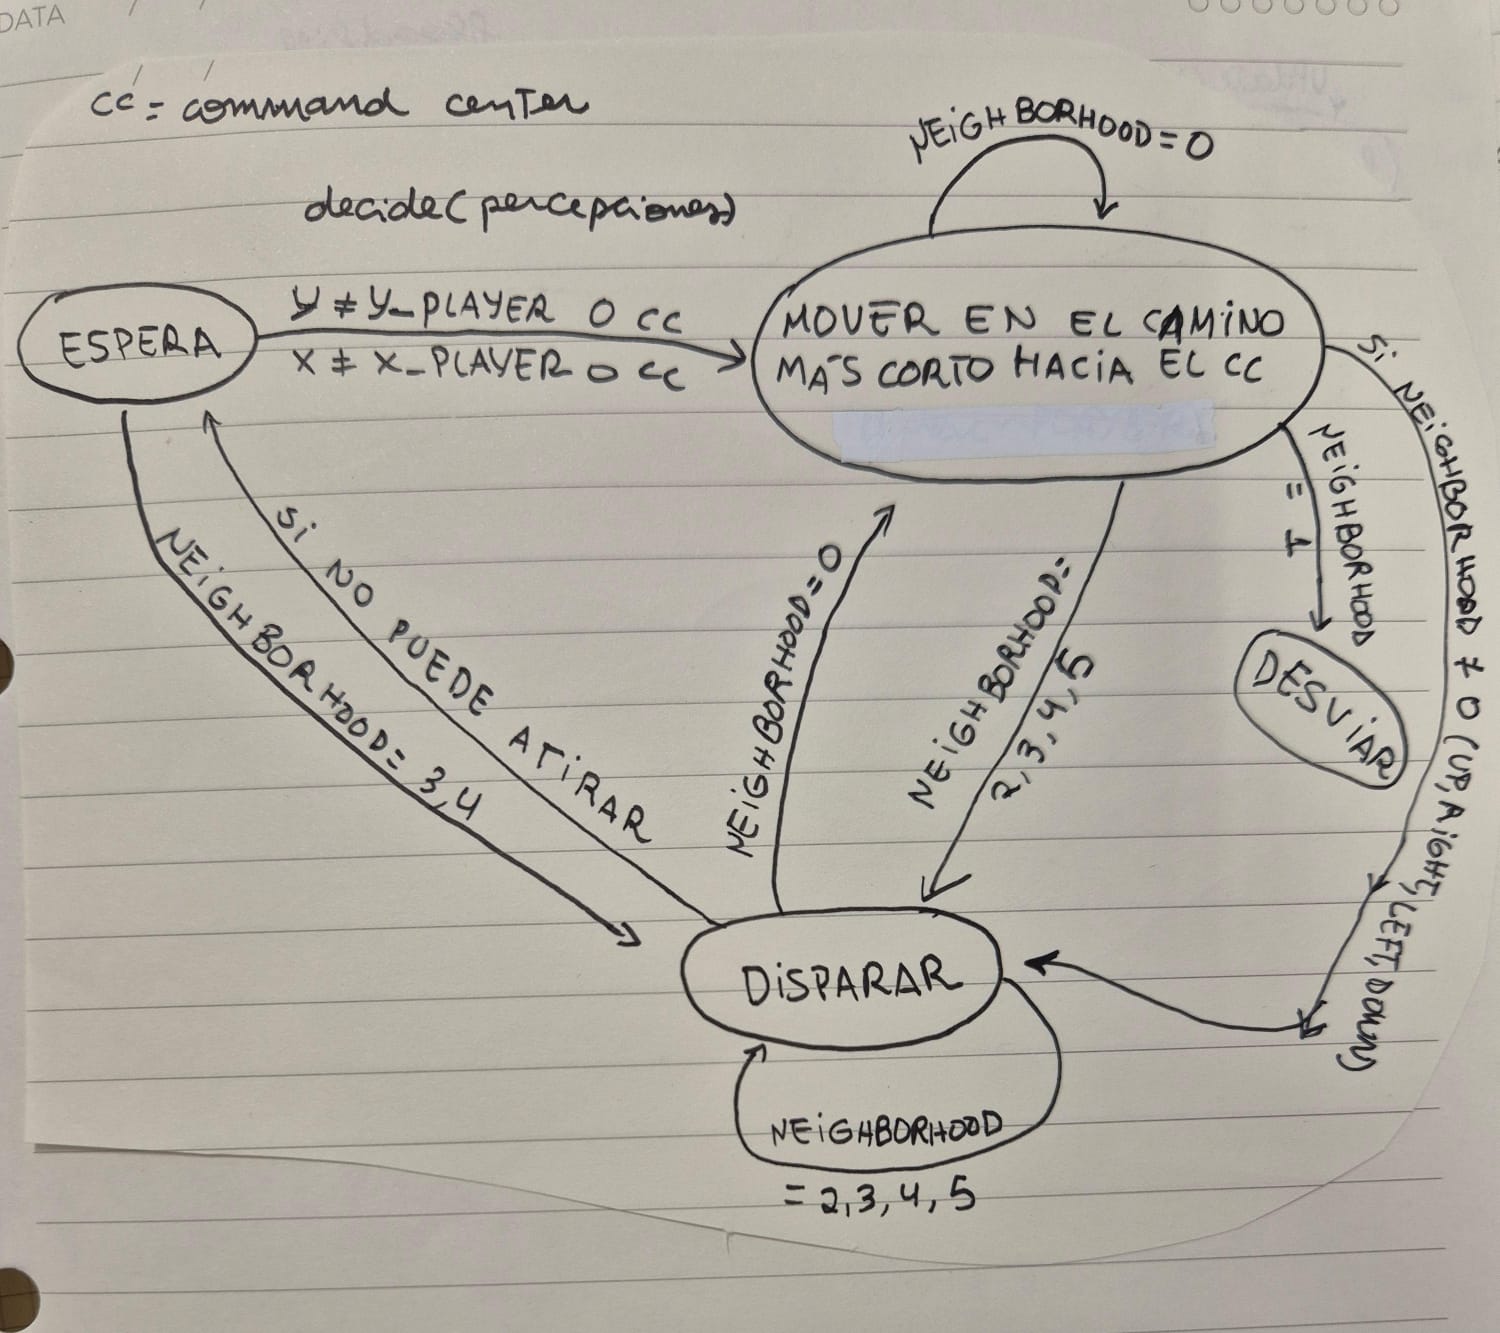 DATA
CC = command center
decide(percepciones)
NEIGHBORHOOD = 0
ESPERA
y ≠ y_PLAYER O CC
X ≠ X_PLAYER O CC
MOVER EN EL CAMINO
MÁS CORTO HACIA EL CC
SI NEIGHBORHOOD ≠ 0 (UP, RIGHT, LEFT, DOWN)
NEIGHBORHOOD
= 1
DESVIAR
SI NO PUEDE ATIRAR
NEIGHBORHOOD = 3,4
NEIGHBORHOOD = 0
NEIGHBORHOOD =
2, 3, 4, 5
DISPARAR
NEIGHBORHOOD
= 2, 3, 4, 5